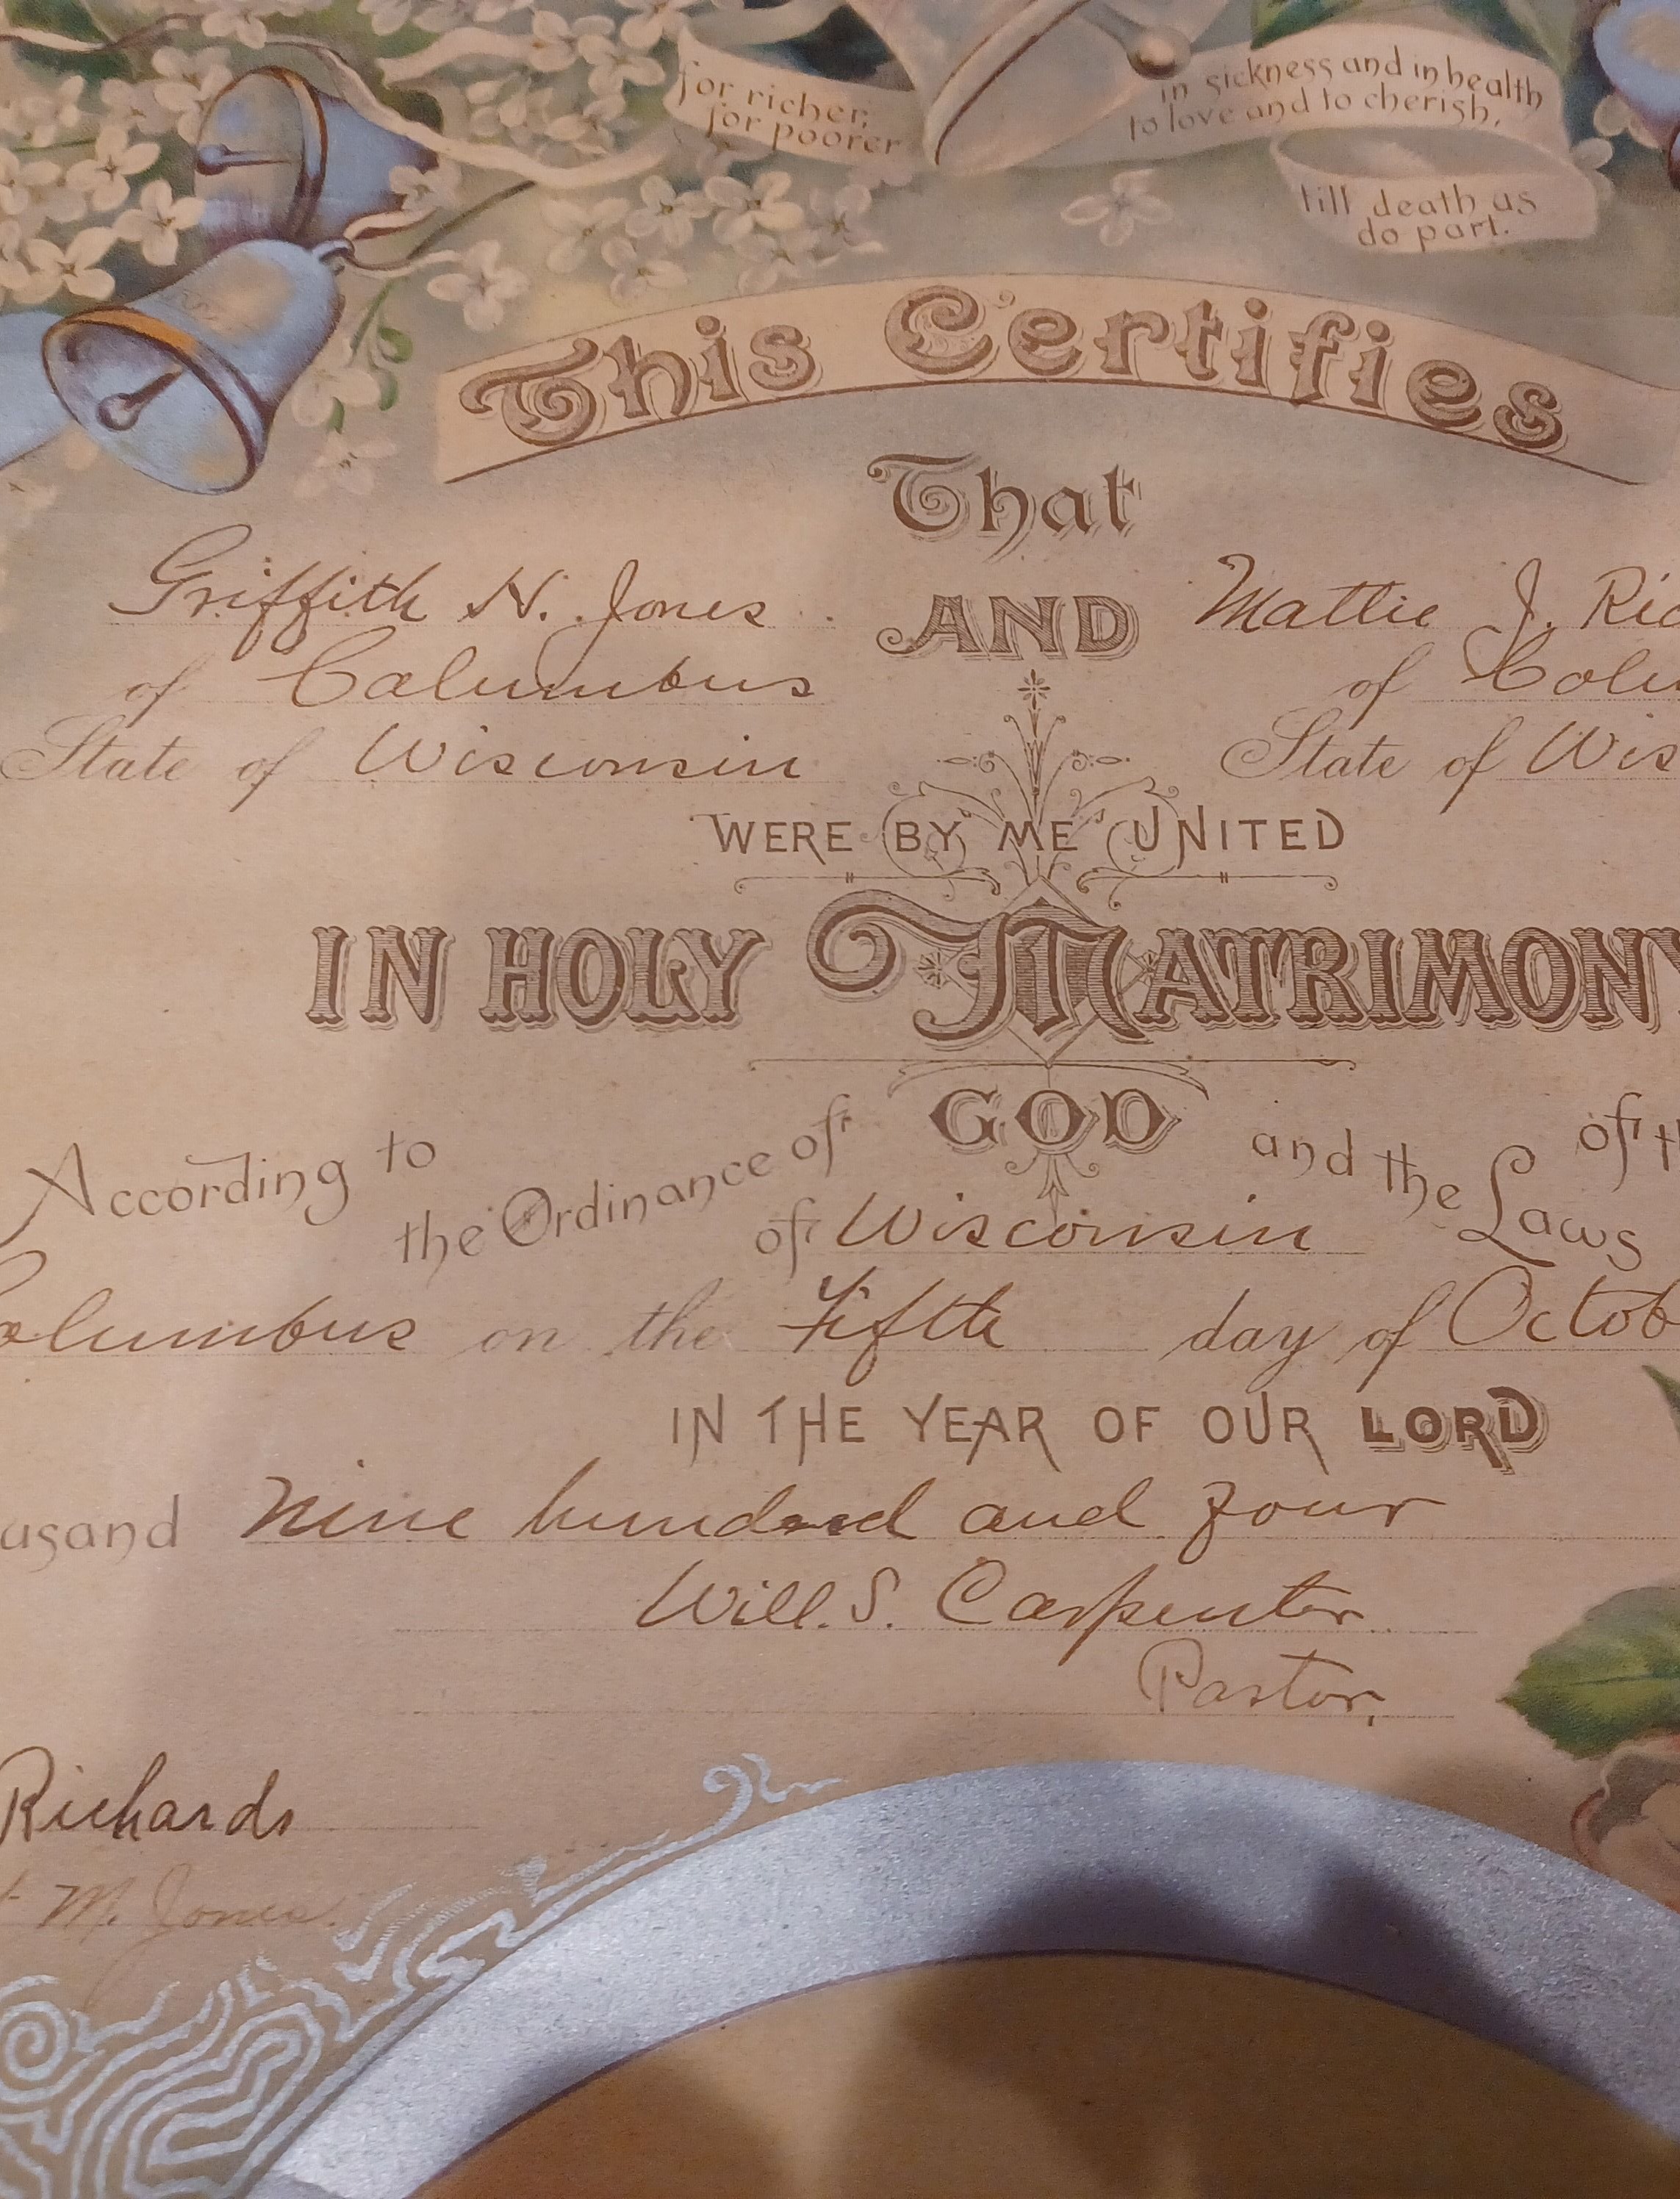 for richer,
for poorer
in sickness and in health
to love and to cherish,
till death us
do part.
This Certifies
That
Griffith N. Jones AND Mattie J. Ric
of Columbus of Colu
State of Wisconsin State of Wis
WERE BY ME UNITED
IN HOLY MATRIMONY
According to the Ordinance of GOD and the Laws of th
of Wisconsin
olumbus on the Fifth day of Octob
IN THE YEAR OF OUR LORD
usand nine hundred and four
Will. S. Carpenter
Pastor,
Richards
M. Jones.